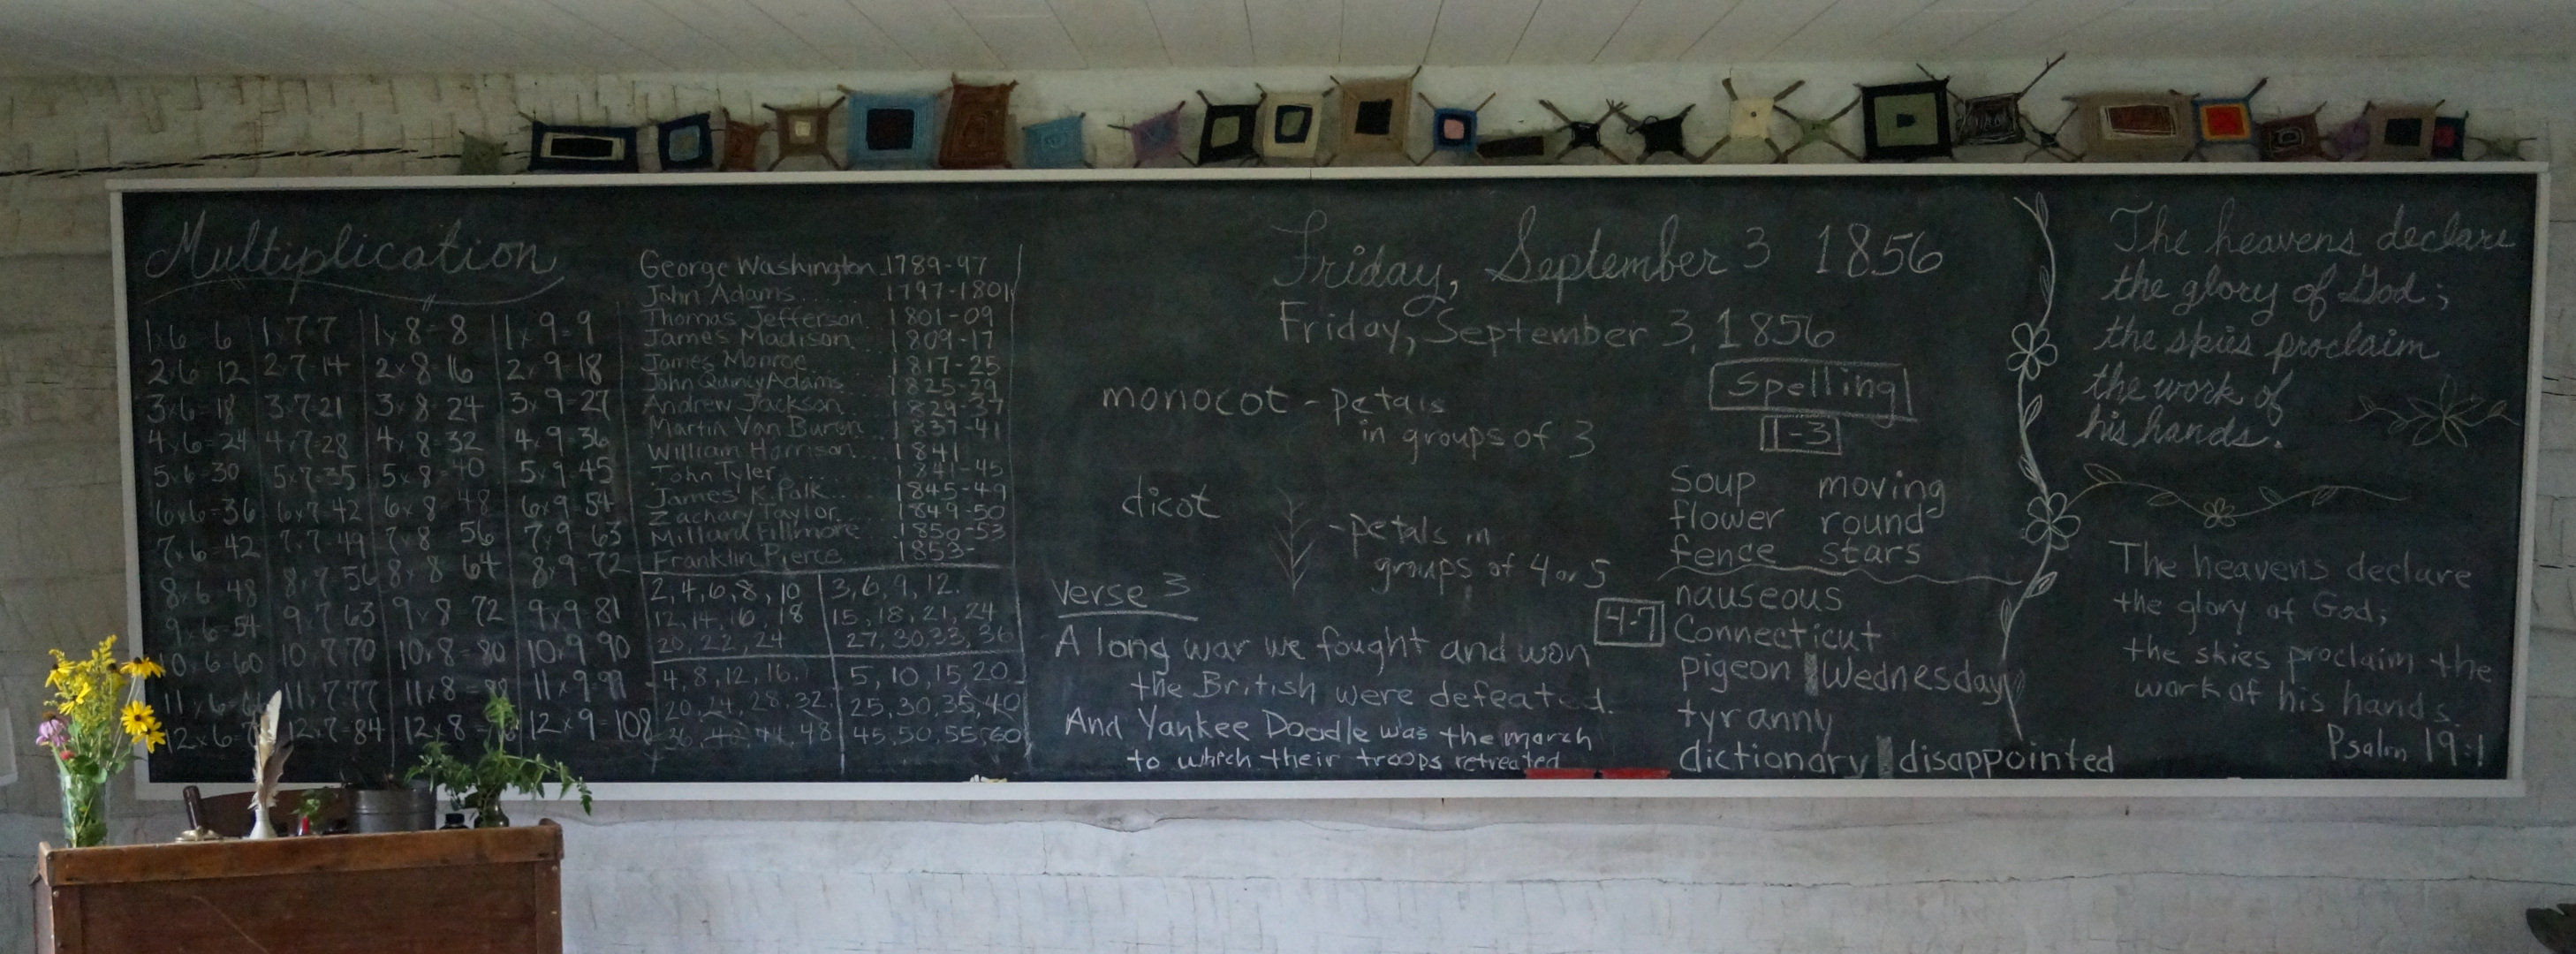 Multiplication
1x6=6 1x7=7 1x8=8 1x9=9
2x6=12 2x7=14 2x8=16 2x9=18
3x6=18 3x7=21 3x8=24 3x9=27
4x6=24 4x7=28 4x8=32 4x9=36
5x6=30 5x7=35 5x8=40 5x9=45
6x6=36 6x7=42 6x8=48 6x9=54
7x6=42 7x7=49 7x8 56 7x9 63
8x6=48 8x7=56 8x8 64 8x9=72
9x6=54 9x7 63 9x8 72 9x9 81
10x6=60 10x7 70 10x8=80 10x9 90
11x6=66 11x7 77 11x8= 11x9=99
12x6= 12x7=84 12x8 12x9=108
George Washington 1789-97
John Adams..... 1797-1801
Thomas Jefferson. 1801-09
James Madison. 1809-17
James Monroe 1817-25
John Quincy Adams 1825-29
Andrew Jackson 1829-37
Martin Van Buren 1837-41
William Harrison... 1841
John Tyler... 1841-45
James K. Polk... 1845-49
Zachary Taylor. 1849-50
Millard Fillmore 1850-53
Franklin Pierce 1853-
2, 4, 6, 8, 10
12, 14, 16, 18
20, 22, 24
3, 6, 9, 12.
15, 18, 21, 24
27, 30, 33, 36
4, 8, 12, 16.
20, 24, 28, 32,
36, 40, 44, 48
5, 10, 15, 20
25, 30, 35, 40
45, 50, 55, 60
Friday, September 3 1856
Friday, September 3, 1856
monocot - petals
in groups of 3
dicot
- petals in
groups of 4 or 5
Verse 3
A long war we fought and won
the British were defeated.
And Yankee Doodle was the march
to which their troops retreated
Spelling
1-3
soup moving
flower round
fence stars
4-7
nauseous
Connecticut
pigeon Wednesday
tyranny
dictionary disappointed
The heavens declare
the glory of God;
the skies proclaim
the work of
his hands.
The heavens declare
the glory of God;
the skies proclaim the
work of his hands.
Psalm 19:1